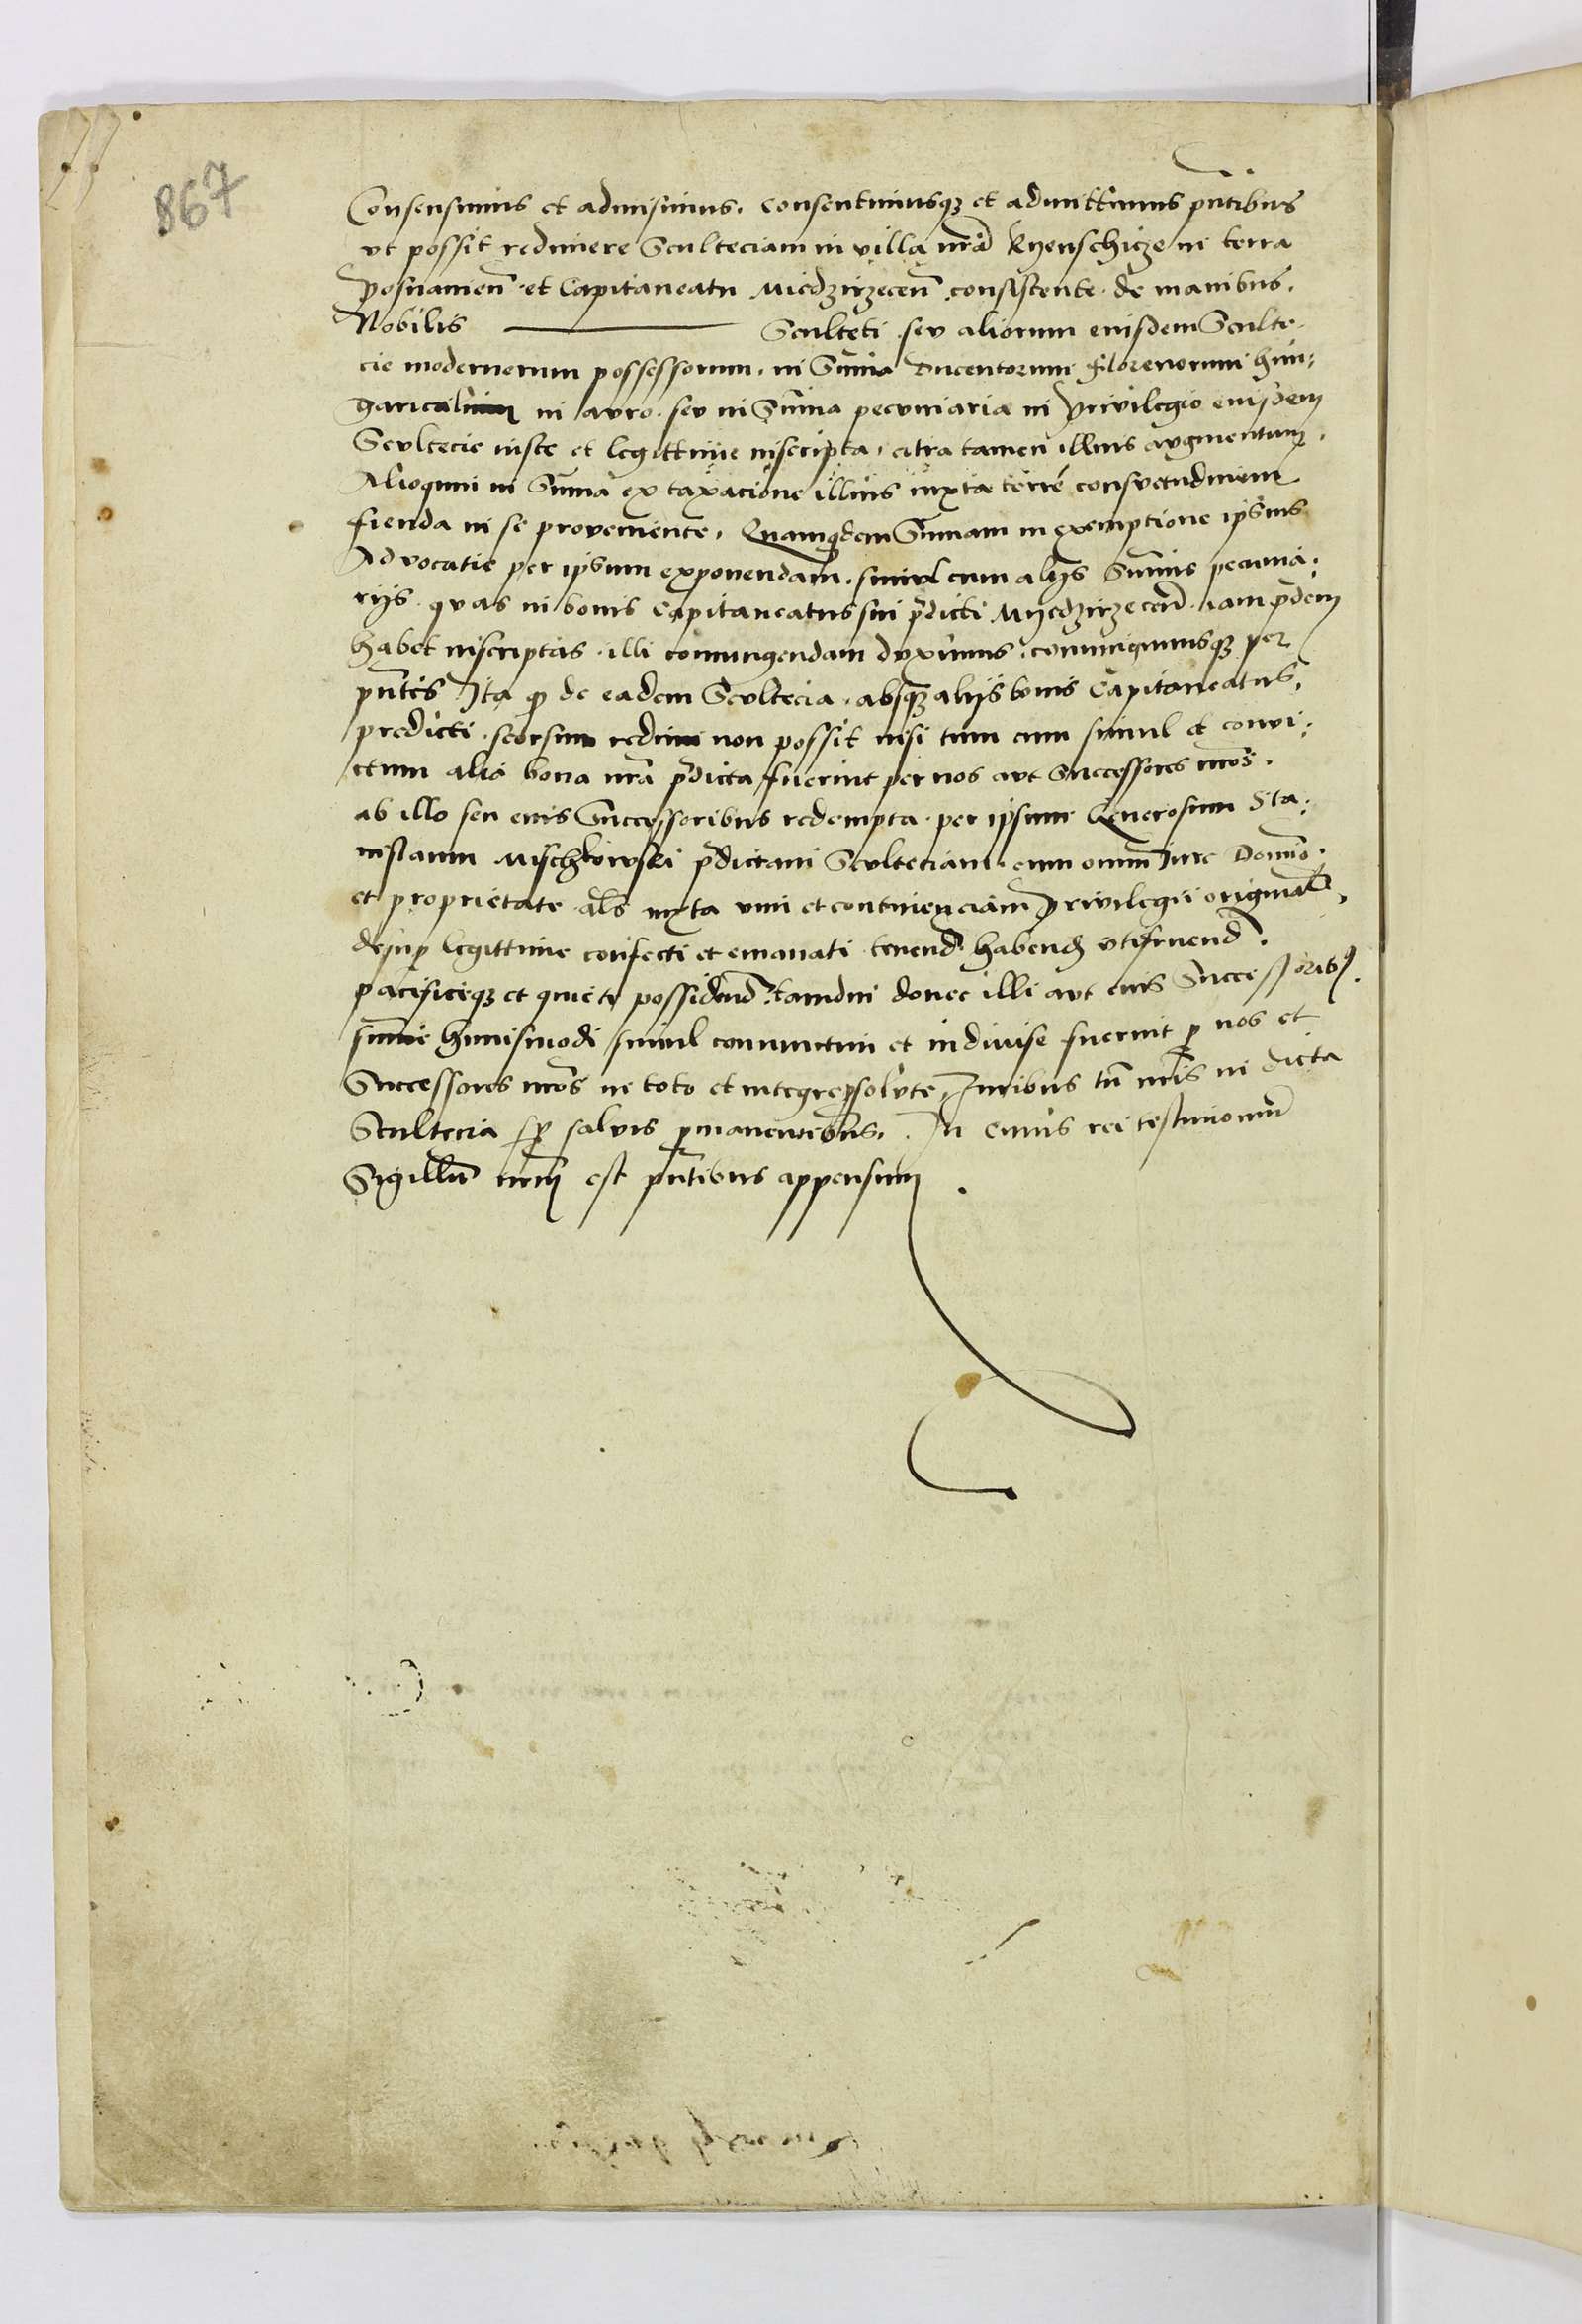 867
Consensimus et admisimus. consentimusq3 et admittimus pntibus
vt possit redimere Sculteciam in villa nra Kyenschicze in terra
Posnanien. et Capitaneatu Miedzirzecen consistente. de manibus.
Nobilis ——— Sculteti. seu aliorum eiusdem Sculte-
cie modernorum possessorum. in Suma Ducentorum florenorum hun:
garicalium in auro. seu in Suma pecuniaria in Privilegio eiusdem
Scultecie iuste et legittime inscripta, citra tamen illius augmentum.
Alioquin in Suma ex taxacione illius iuxta terre consuetudinem
fienda in se proveniente. Quamqdem Sumam in exemptione ipsius
Advocatie per ipsum exponendam. simul cum alijs Sumis pecunia:
rijs. quas in bonis Capitaneatus sui pdicti Myedzirzecen. iam pdem
habet inscriptas. illi coniungendam duximus. coniungimusq3 per
pntes Ita q de eadem Scultecia. absq3 alijs bonis Capitaneatus,
predicti. seorsim redimi non possit nisi tum cum simul et coniu:
ctim alia bona nra pdicta fuerint per nos aut Successores nros.
ab illo seu eius Successoribus redempta. per ipsum Generosum Sta:
nislaum Mischkowski pdictam Sculteciam. cum omni Iure Domio.
et proprietate als iuxta vim et continenciam Privilegii original
desup legittime confecti et emanati. tenend. habend utifruend.
pacificeq3 et quiete possidend. tamdiu donec illi aut eius Successorib9.
sume huiusmodi simul coniunctim et indivise fuerint p nos et
Successores nros in toto et integre psolute. Iuribus tn nris in dicta
Scultecia sp salvis pmanentibus. In cuius rei testimonium
Sigillu nrm est pntibus appensum.